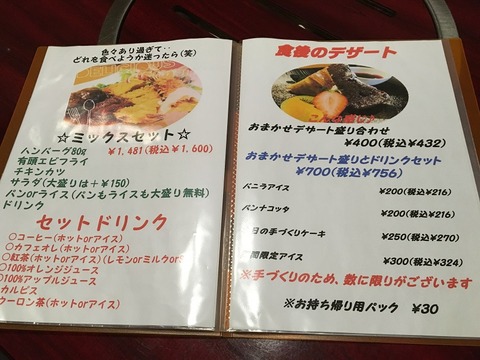 色々あり過ぎて・・
どれを食べようか迷ったら(笑)
☆ミックスセット☆
ハンバーグ80g ￥1,481(税込￥1,600)
有頭エビフライ
チキンカツ
サラダ(大盛りは＋￥150)
パンorライス(パンもライスも大盛り無料)
ドリンク
セットドリンク
○コーヒー(ホットorアイス)
○カフェオレ(ホットorアイス)
○紅茶(ホットorアイス)(レモンorミルクor
○100%オレンジジュース
○100%アップルジュース
カルピス
ウーロン茶(ホットorアイス)
食後のデザート
おまかせデザート盛り合わせ
￥400(税込￥432)
おまかせデザート盛りとドリンクセット
￥700(税込￥756)
バニラアイス ￥200(税込￥216)
パンナコッタ ￥200(税込￥216)
日の手づくりケーキ ￥250(税込￥270)
間限定アイス ￥300(税込￥324)
※手づくりのため、数に限りがございます
※お持ち帰り用パック ￥30